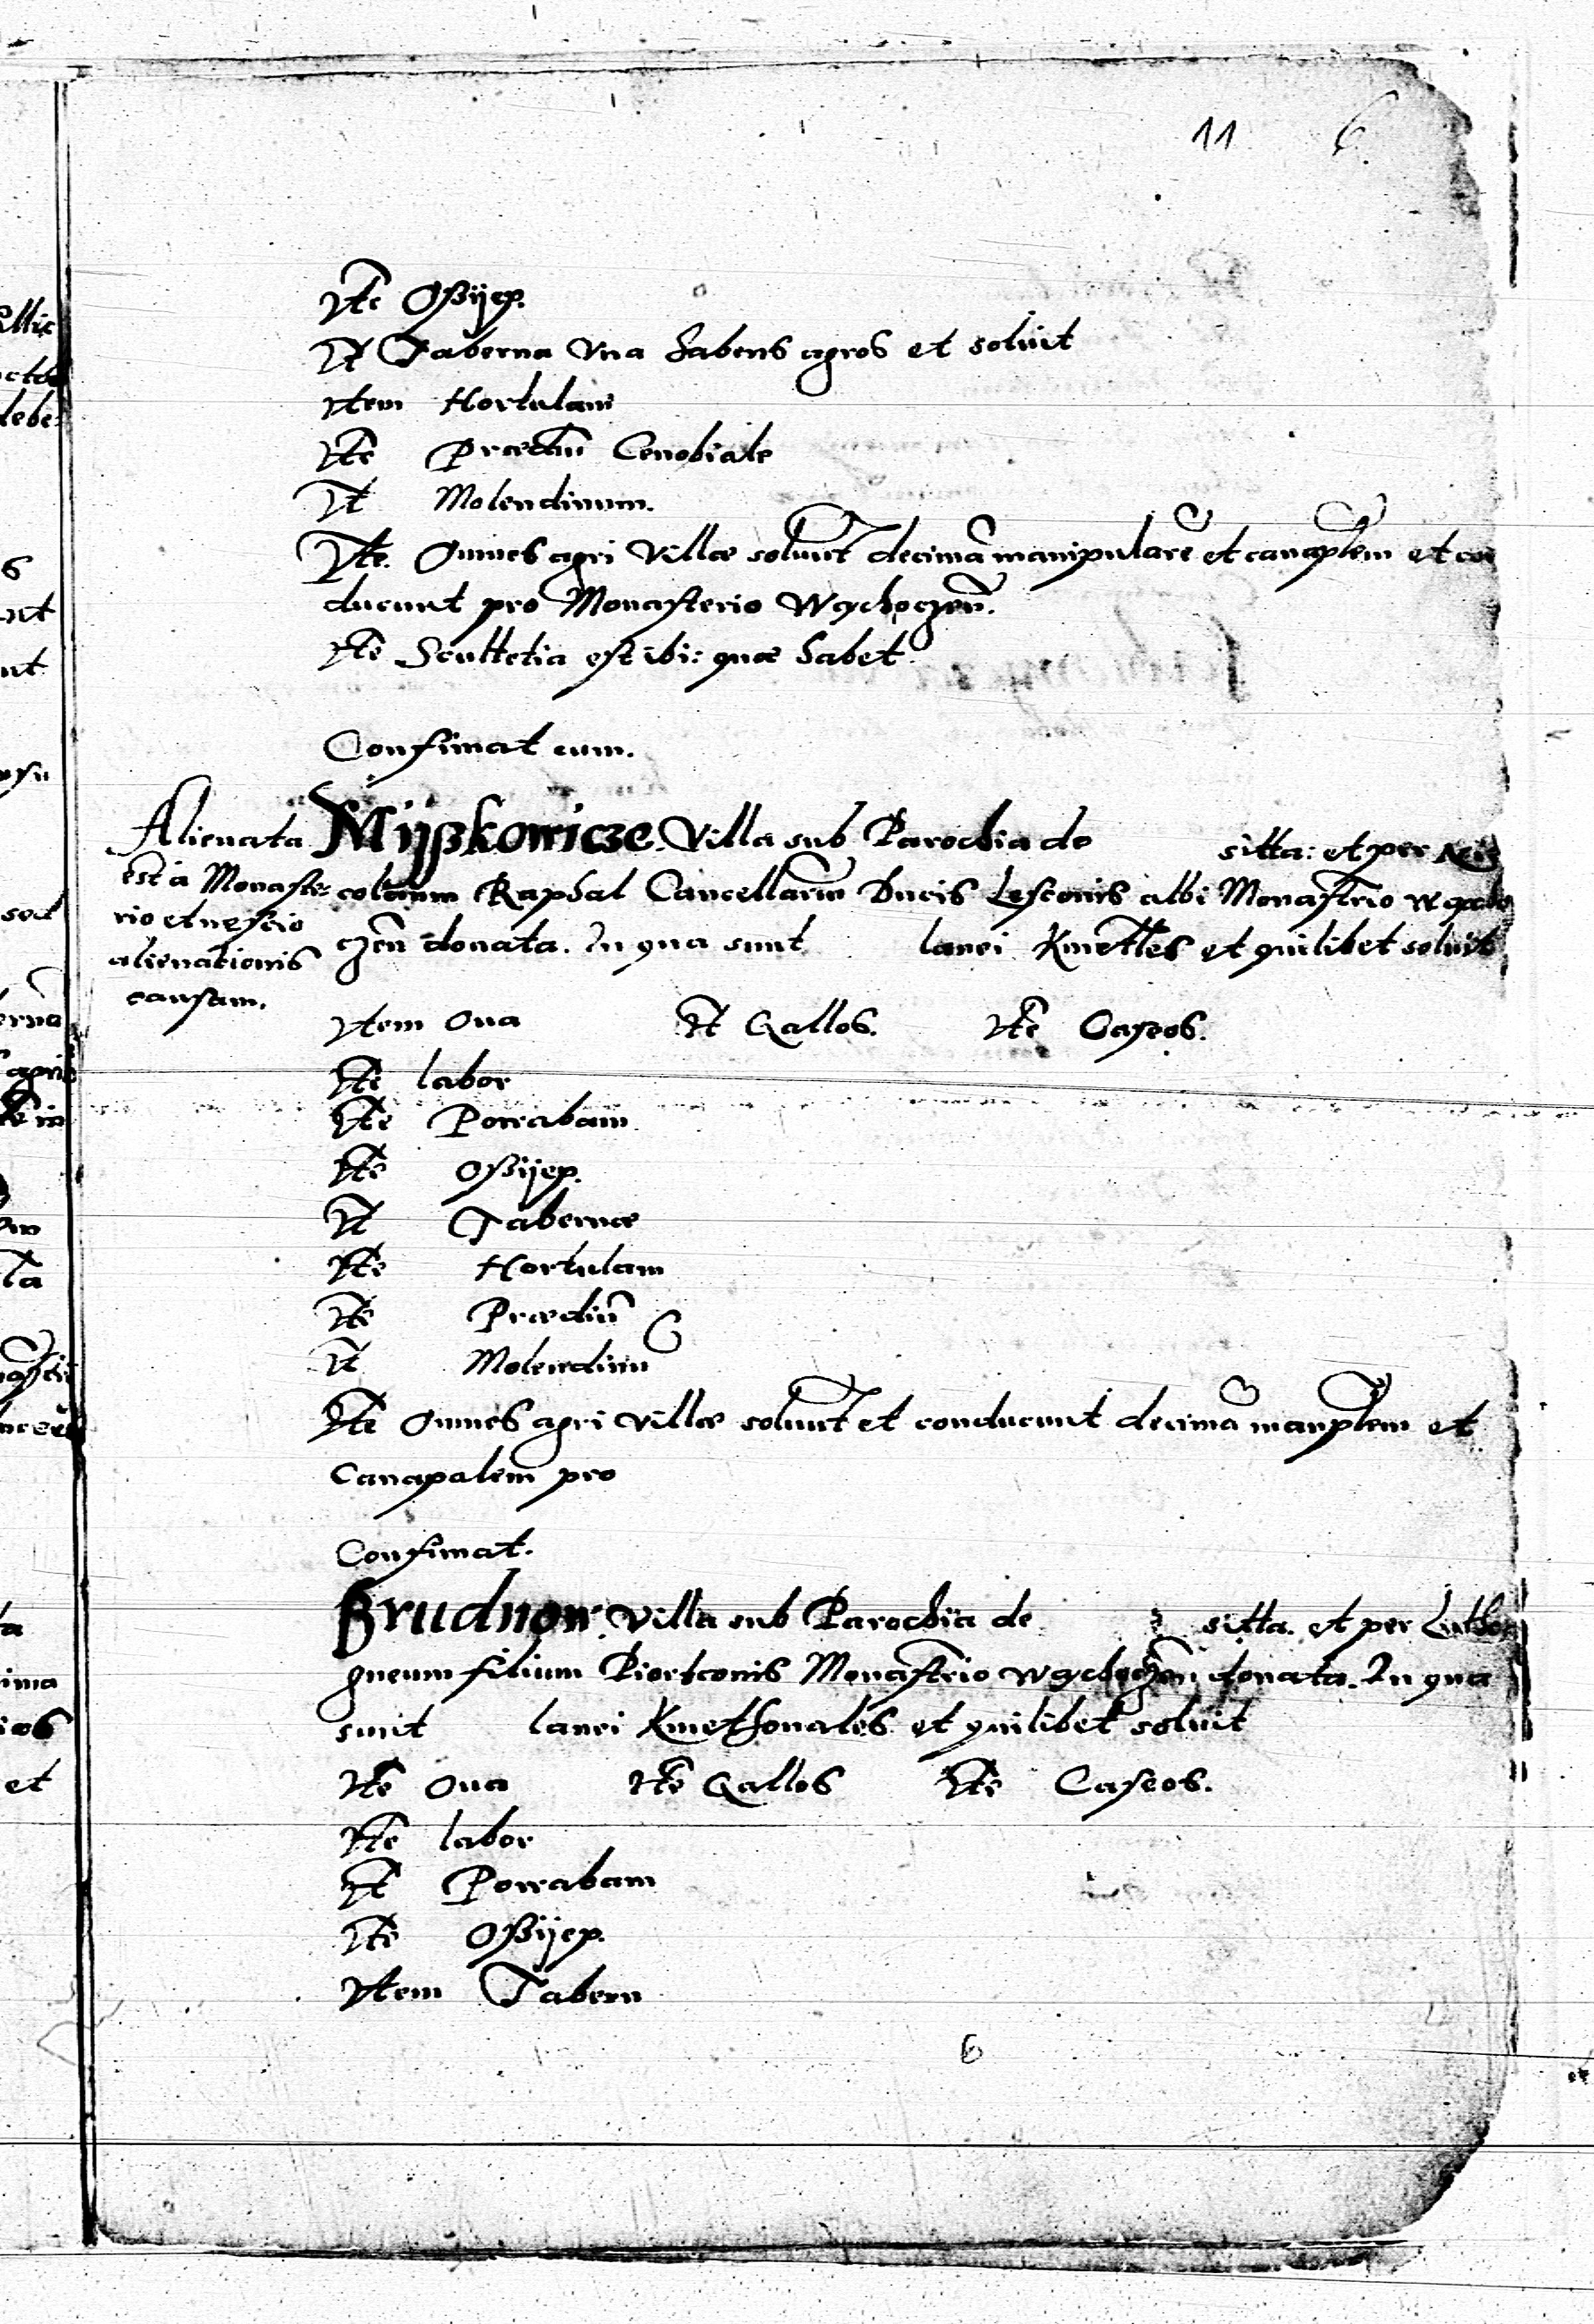 11 6
Ite Oßijep.
It Taberna Vna habens agros et soluit
Item Hortulani
Ite Prædiũ Cenobiale
It Molendinum.
Ite. Omnes agri Villæ soluunt decimã manipularẽ et canaplem et con
ducunt pro Monasterio Wąchoczeñ.
Ite Scultetia est ibi: quæ habet
Confimat cum.
Alienata
est a Monaste:
rio et nescio
alienationis
causam.
Mijßkowicze. Villa sub Parochia de sitta: et per Nis
colaum Raphal Cancellariũ Ducis Lesconis albi Monastrio Wącho
czeñ donata. In qua sunt lanei Kmettles et quilibet soluit
Item Oua It Gallos. Ite Caseos.
Ite labor
Ite Powabam
Ite Oßijep.
It Tabernæ
Ite Hortulani
Ite Prædiũ
It Molendinũ
Ite Omnes agri villæ soluunt et conducunt decimã manplem et
Canapalem pro
Confimat.
Brudnow. Villa sub Parochia de sitta. et per Lutho
gneum filium Piortconis Monastrio Wąchoczeñ donata. In qua
sunt lanei Kmethonales et quilibet soluit
Ite Oua Ite Gallos Ite Caseos.
Ite labor
It Powabam
Ite Oßijep.
Item Tabern
6